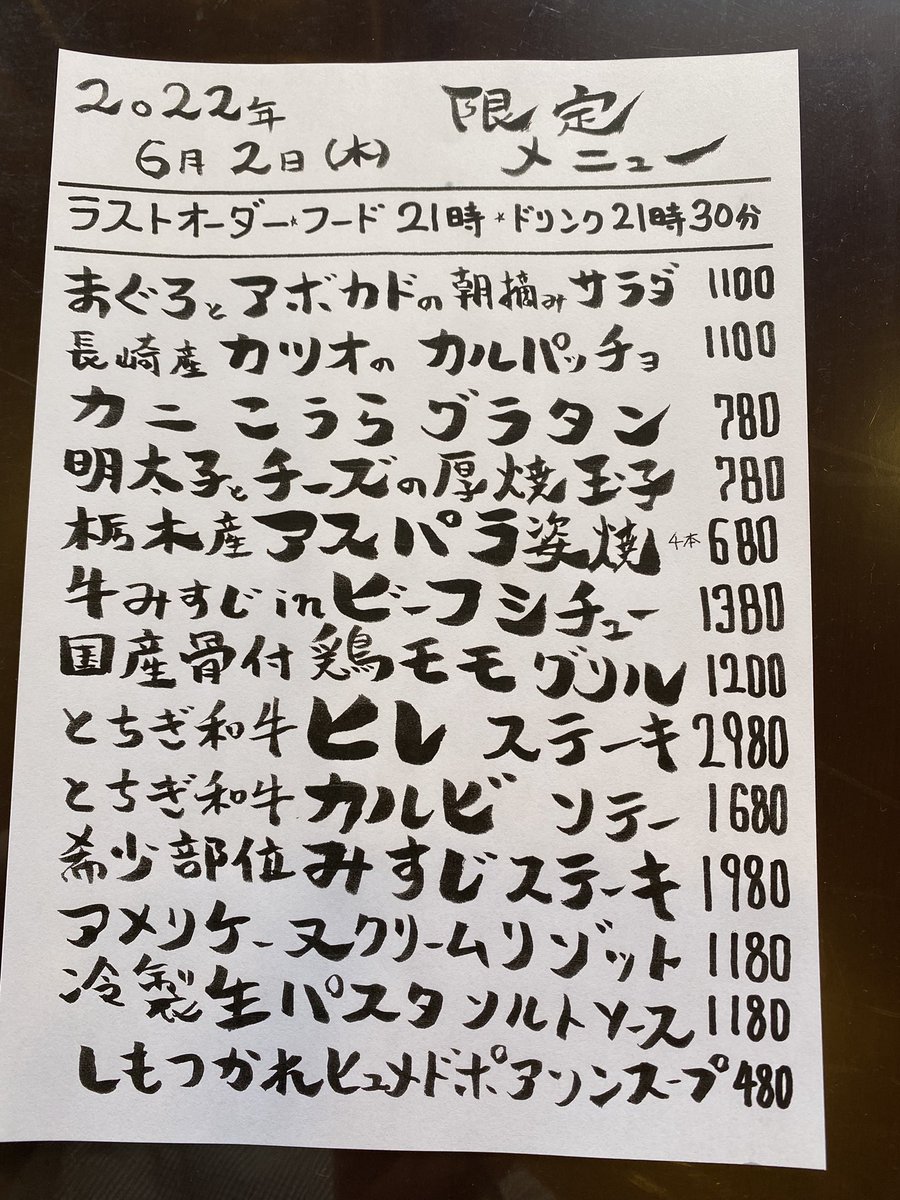 2022年 限定
6月2日(木) メニュー
ラストオーダー*フード 21時 *ドリンク21時30分
まぐろとアボカドの朝摘みサラダ 1100
長崎産カツオのカルパッチョ 1100
カニこうらグラタン 780
明太子とチーズの厚焼玉子 780
栃木産アスパラ姿焼 4本 680
牛みすじinビーフシチュー 1380
国産骨付鶏モモグリル 1200
とちぎ和牛ヒレステーキ 2980
とちぎ和牛カルビソテー 1680
希少部位みすじステーキ 1980
アメリケーヌクリームリゾット 1180
冷製生パスタソルトソース 1180
しもつかれヒュメドポアソンスープ 480